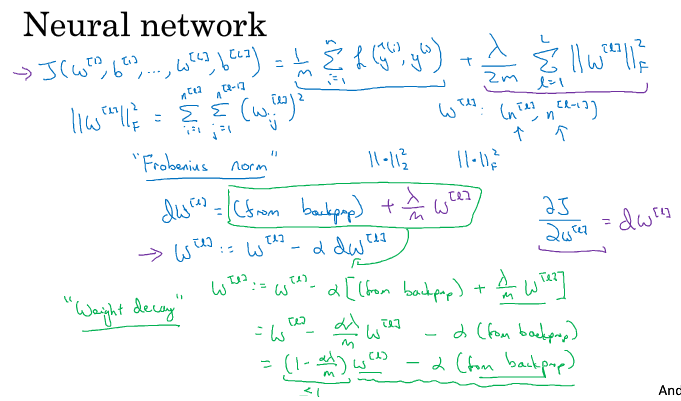 Neural network
→ J(w^[1], b^[1], ..., w^[L], b^[L]) = 1/m Σ_{i=1}^{m} L(ŷ^(i), y^(i)) + λ/2m Σ_{l=1}^{L} ||w^[l]||_F^2
||w^[l]||_F^2 = Σ_{i=1}^{n^[l]} Σ_{j=1}^{n^[l-1]} (w_ij^[l])^2 w^[l]: (n^[l], n^[l-1])
"Frobenius norm" ||·||_2^2 ||·||_F^2
dw^[l] = (from backprop) + λ/m w^[l] ∂J/∂w^[l] = dw^[l]
→ w^[l] := w^[l] - α dw^[l]
"Weight decay" w^[l] := w^[l] - α [(from backprop) + λ/m w^[l]]
= w^[l] - αλ/m w^[l] - α (from backprop)
= (1 - αλ/m) w^[l] - α (from backprop)
<1
And